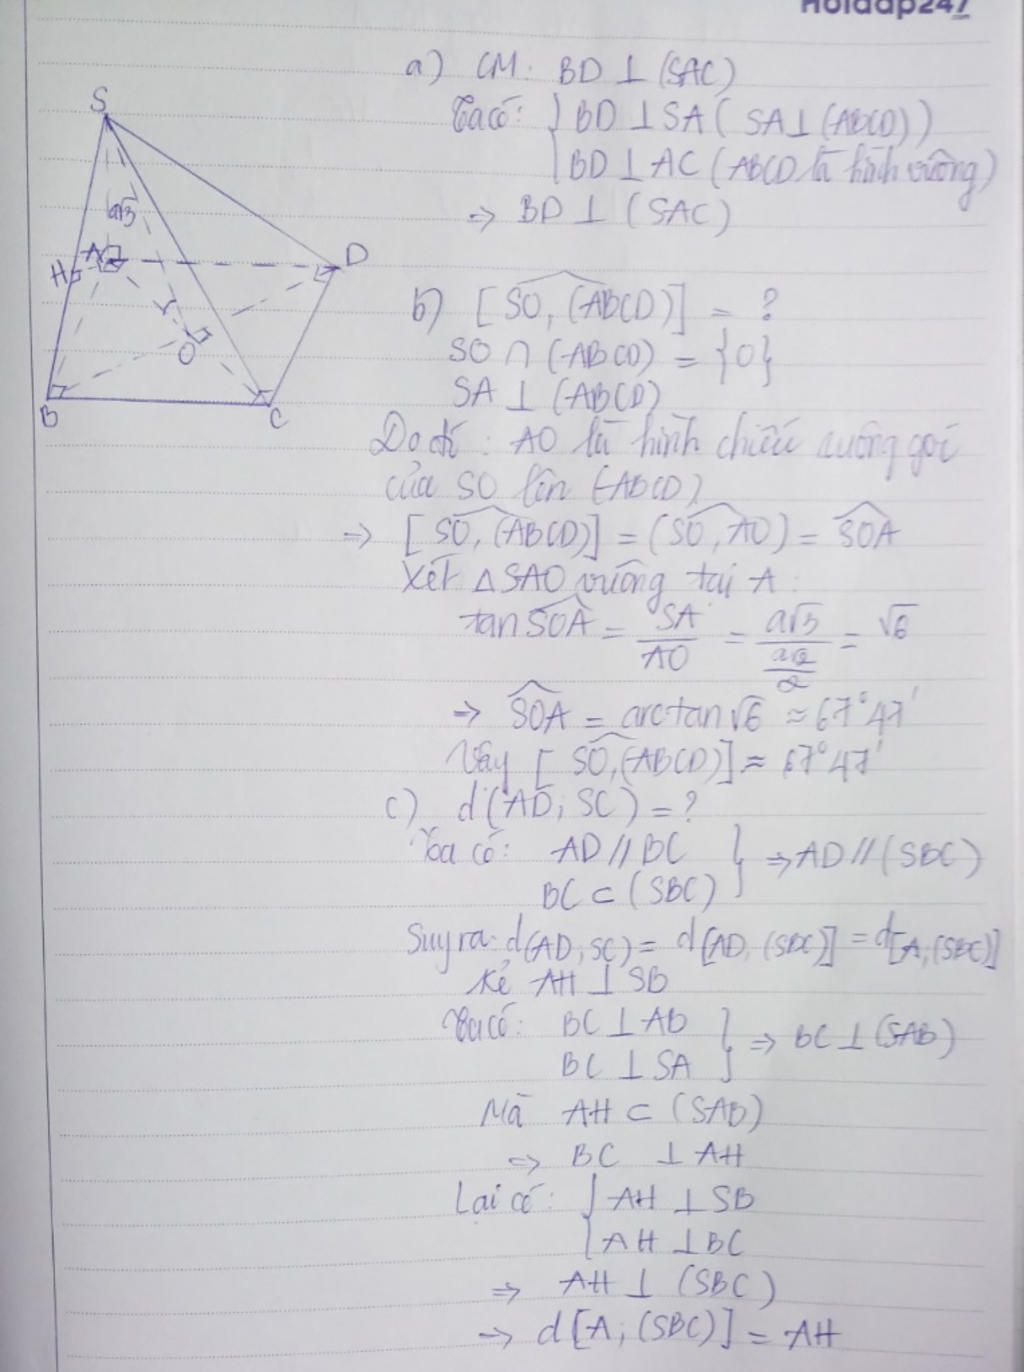 Hoidap247
a) CM: BD ⊥ (SAC)
Ta có: { BD ⊥ SA ( SA ⊥ (ABCD) )
BD ⊥ AC (ABCD là hình vuông)
⇒ BD ⊥ (SAC)
S
a√3
A
H
D
O
B
C
b) [SO, (ABCD)] = ?
SO ∩ (ABCD) = {O}
SA ⊥ (ABCD)
Do đó: AO là hình chiếu vuông gói
của SO lên (ABCD)
⇒ [SO, (ABCD)] = (SO, AO) = SOA
Xét △SAO vuông tại A:
tan SOA = SA/AO = a√3/(a√2/2) = √6
⇒ SOA = arctan√6 ≈ 67°47'
Vậy [SO, (ABCD)] ≈ 67°47'
c) d(AD; SC) = ?
Ta có: AD // BC } ⇒ AD // (SBC)
BC ⊂ (SBC)
Suy ra: d(AD, SC) = d[AD, (SBC)] = d[A, (SBC)]
Kẻ AH ⊥ SB
Ta có: BC ⊥ AB } ⇒ BC ⊥ (SAB)
BC ⊥ SA
Mà AH ⊂ (SAB)
⇒ BC ⊥ AH
Lại có: { AH ⊥ SB
AH ⊥ BC
⇒ AH ⊥ (SBC)
⇒ d[A; (SBC)] = AH